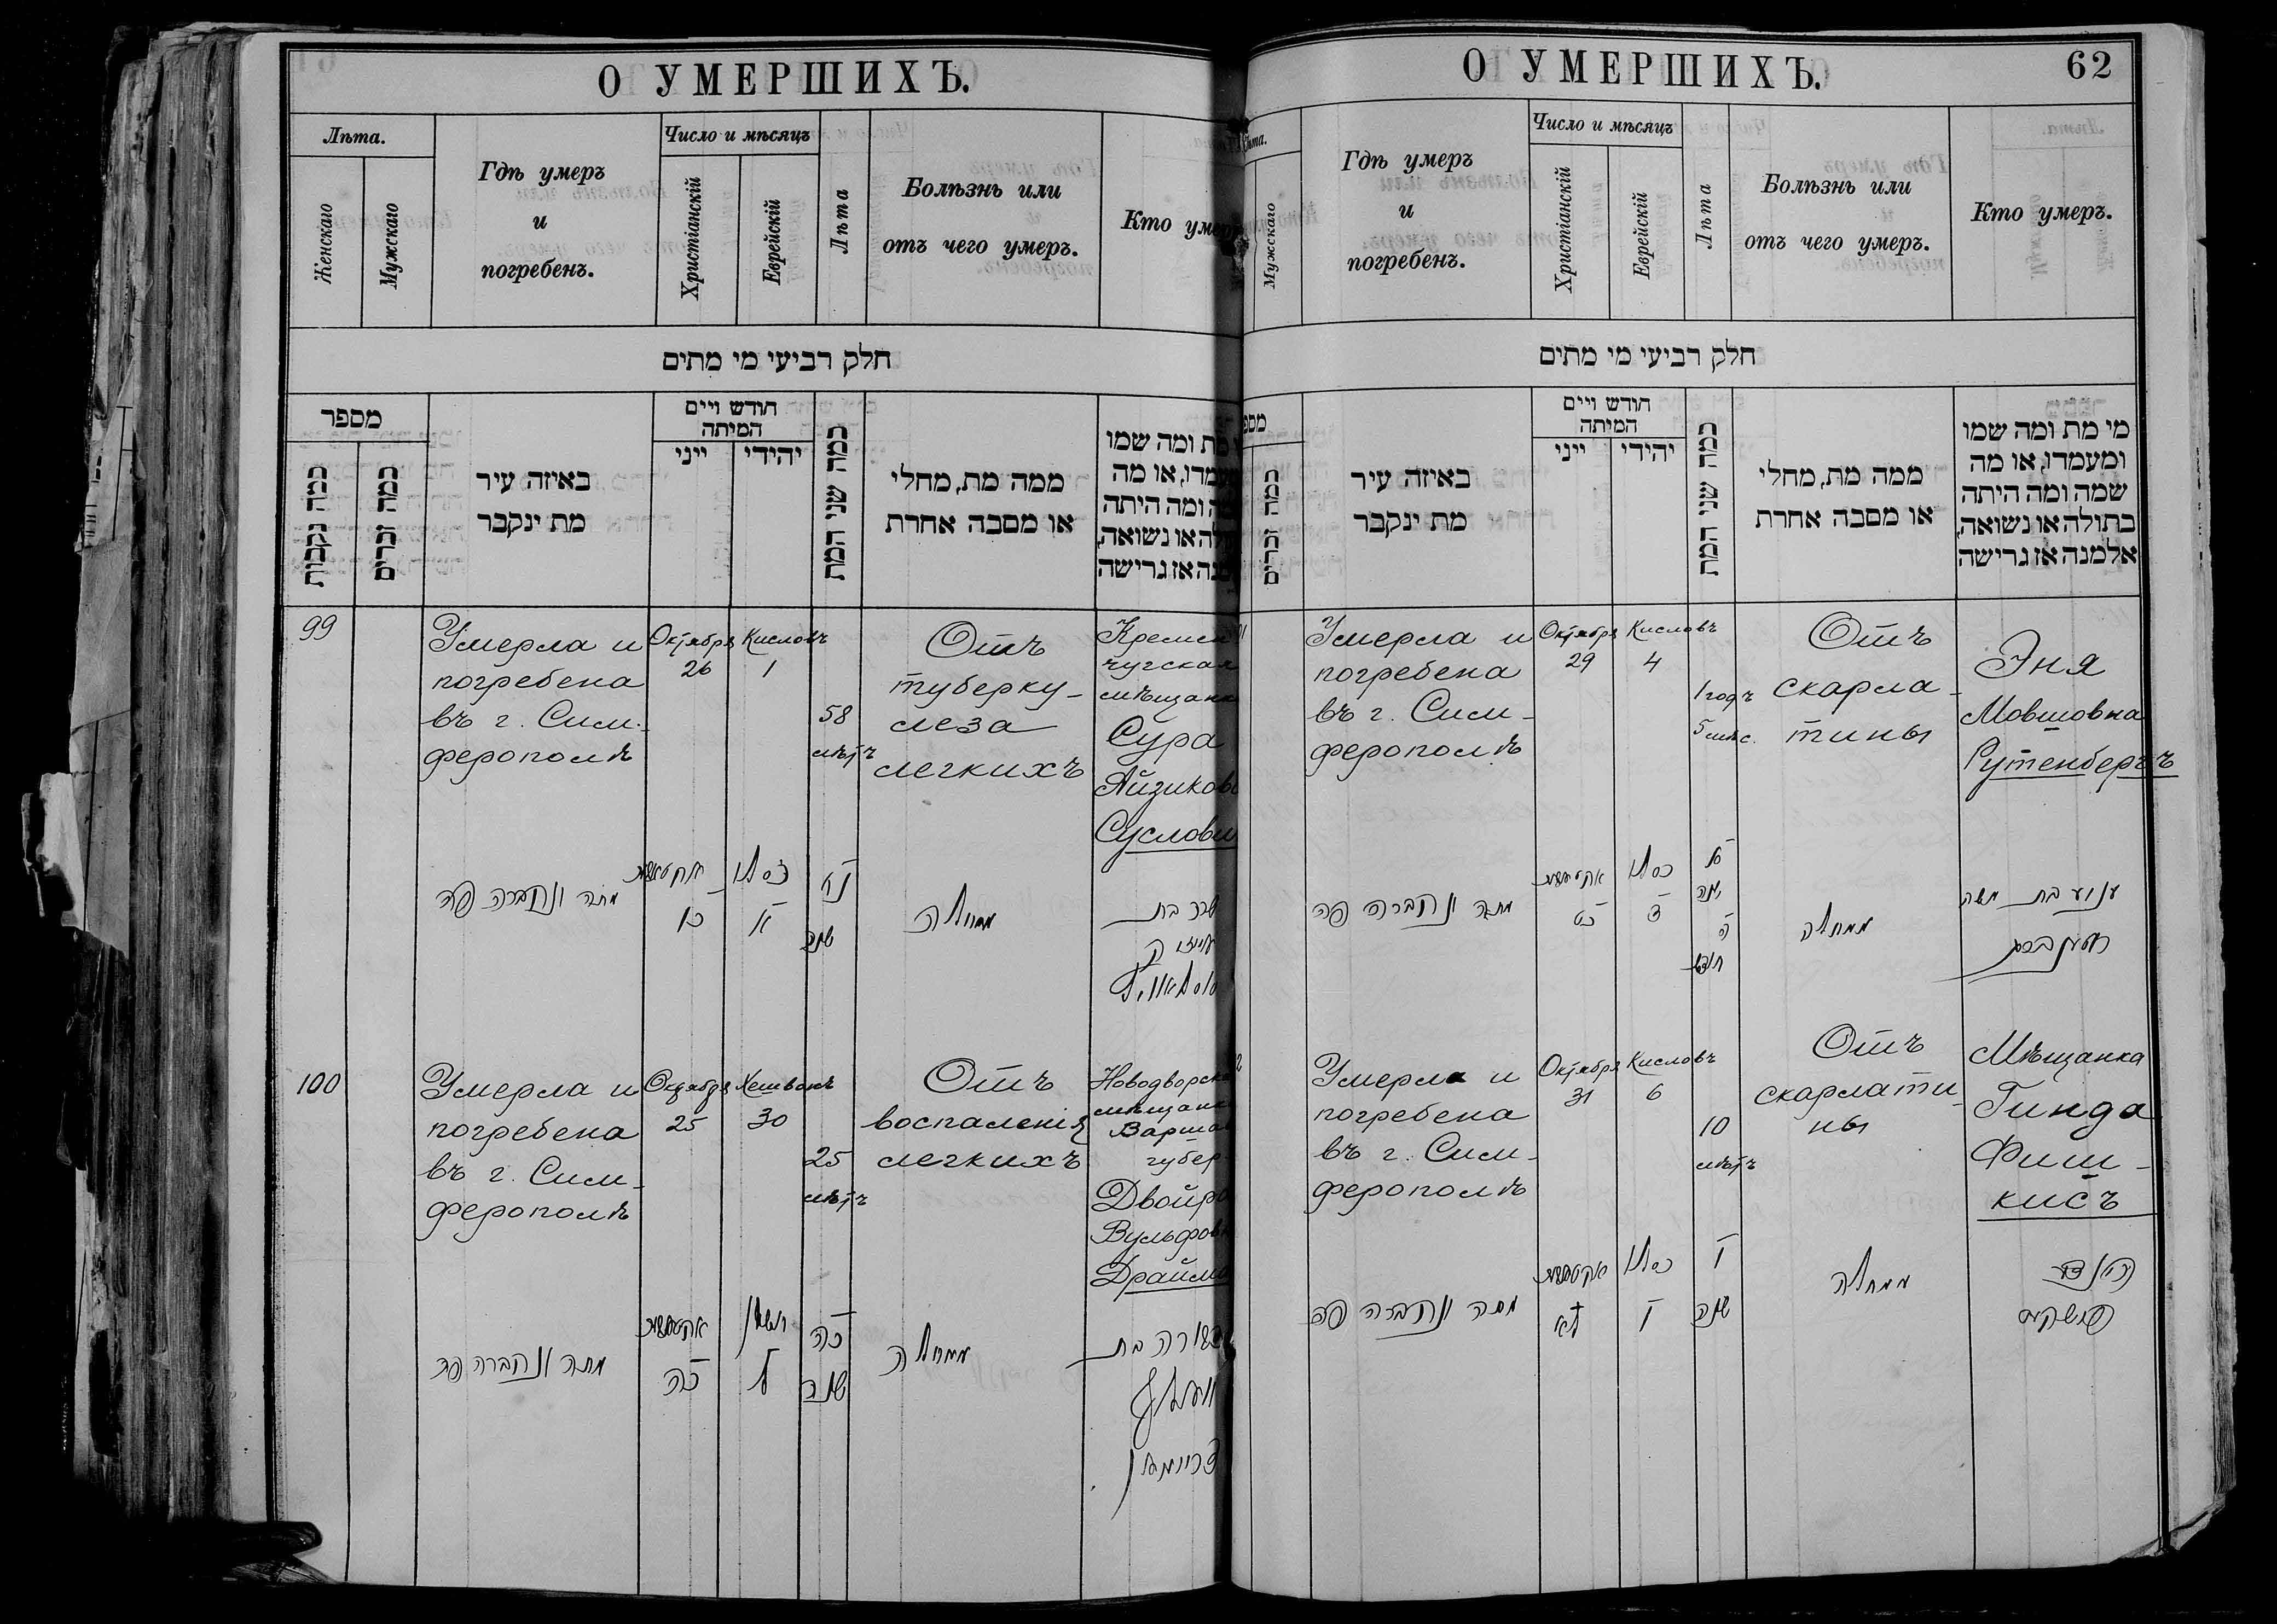 О УМЕРШИХЪ.
Лѣта.
Женскаго
Мужскаго
Гдѣ умеръ
и
погребенъ.
Число и мѣсяцъ
Христіанскій
Еврейскій
Лѣта
Болѣзнь или
отъ чего умеръ.
Кто умеръ
חלק רביעי מי מתים
מספר
כמה נקבות
כמה זכרים
באיזה עיר
מת ינקבר
חודש ויים
המיתה
ייני
יהודי
כמה שני המת
ממה מת, מחלי
או מסבה אחרת
מת ומה שמו
או מה
ומה היתה
או נשואה,
אז גרישה
99
Умерла и
погребена
въ г. Сим-
ферополѣ
Октября
26
Кисловъ
1
58
лѣтъ
Отъ
туберку-
леза
легкихъ
Кремен
чугская
мѣщанка
Сура
Айзиков
Суслови
מתה ונקברה פה
כו
א
נח
שנה
ממחלה
שרה בת
אייזיק
100
Умерла и
погребена
въ г. Сим-
ферополѣ
Октября
25
Хешванъ
30
25
лѣтъ
Отъ
воспаленія
легкихъ
Новодворска
мѣщанк
Варшав
губер
Двойра
Вульфов
Драйм
מתה ונקברה פה
כה
ל
כה
שנה
ממחלה
דווירה בת
וואלף
О УМЕРШИХЪ.
62
Лѣта.
Мужскаго
Гдѣ умеръ
и
погребенъ.
Число и мѣсяцъ
Христіанскій
Еврейскій
Лѣта
Болѣзнь или
отъ чего умеръ.
Кто умеръ.
חלק רביעי מי מתים
כמה זכרים
באיזה עיר
מת ינקבר
חודש ויים
המיתה
ייני
יהודי
כמה שני המת
ממה מת, מחלי
או מסבה אחרת
מי מת ומה שמו
ומעמדו, או מה
שמה ומה היתה
בתולה או נשואה,
אלמנה אז גרישה
Умерла и
погребена
въ г. Сим-
ферополѣ
Октября
29
Кисловъ
4
1 годъ
5 мѣс.
Отъ
скарла-
тины
Эня
Мовшовна
Рутенбергъ
מתה ונקברה פה
כט
ד
א
שנה
ה
חודש
ממחלה
בת משה
Умерла и
погребена
въ г. Сим-
ферополѣ
Октября
31
Кисловъ
6
10
лѣтъ
Отъ
скарлати-
ны
Мѣщанка
Гинда
Фиш-
кисъ
מתה ונקברה פה
לא
ו
י
שנה
ממחלה
הינדע
פישקיס